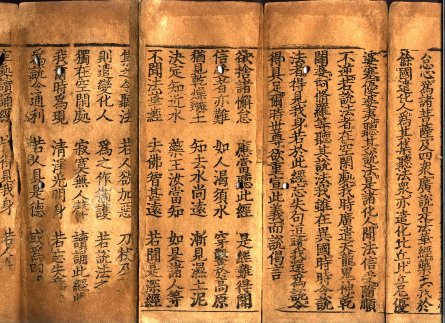 怠心為諸菩薩及四眾廣說是法華經藥王我於
餘國遣化人為其集聽法眾亦遣化比丘比丘尼優
婆塞優婆夷聽其說法是諸化人聞法信受隨順
不逆若說法者在空閑處我時廣遣天龍鬼神乾
闥婆阿脩羅等聽其說法我雖在異國時時令說
法者得見我身若於此經忘失句逗我還為說令
得具足爾時世尊欲重宣此義而說偈言
欲捨諸懈怠 應當聽此經 是經難得聞
信受者亦難 如人渴須水 穿鑿於高原
猶見乾燥土 知去水尚遠 漸見濕土泥
決定知近水 藥王汝當知 如是諸人等
不聞法華經 去佛智甚遠 若聞是深經
集之令聽法 若人欲加惡 刀杖及
則遣變化人 為之作衛護 若說法之
獨在空閑處 寂寞無人聲 讀誦此經
我爾時為現 清淨光明身 若忘失
為說令通利 若人具是德 或為四
空處讀誦經 皆得見我身 若人